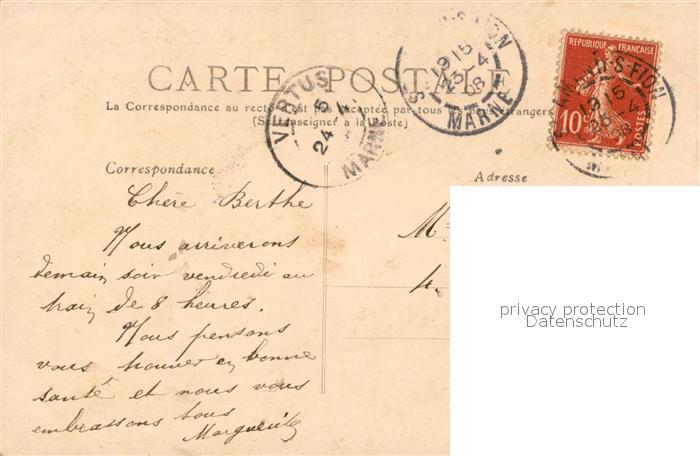 CARTE POSTALE
La Correspondance au recto n'est pas acceptée par tous étrangers
(Se renseigner à la Poste)
VERTUS
24 4
MARNE
ST AMAND-S-FION
19 15
23 4
08
MARNE
REPUBLIQUE FRANÇAISE
10c
POSTES
AMAND-S-FION
19 15
Correspondance
Adresse
Chère Berthe
Nous arriverons
demain soir vendredi au
train de 8 heures.
Nous pensons
vous trouver en bonne
santé et nous vous
embrassons tous
Marguerite
M
4.
privacy protection
Datenschutz